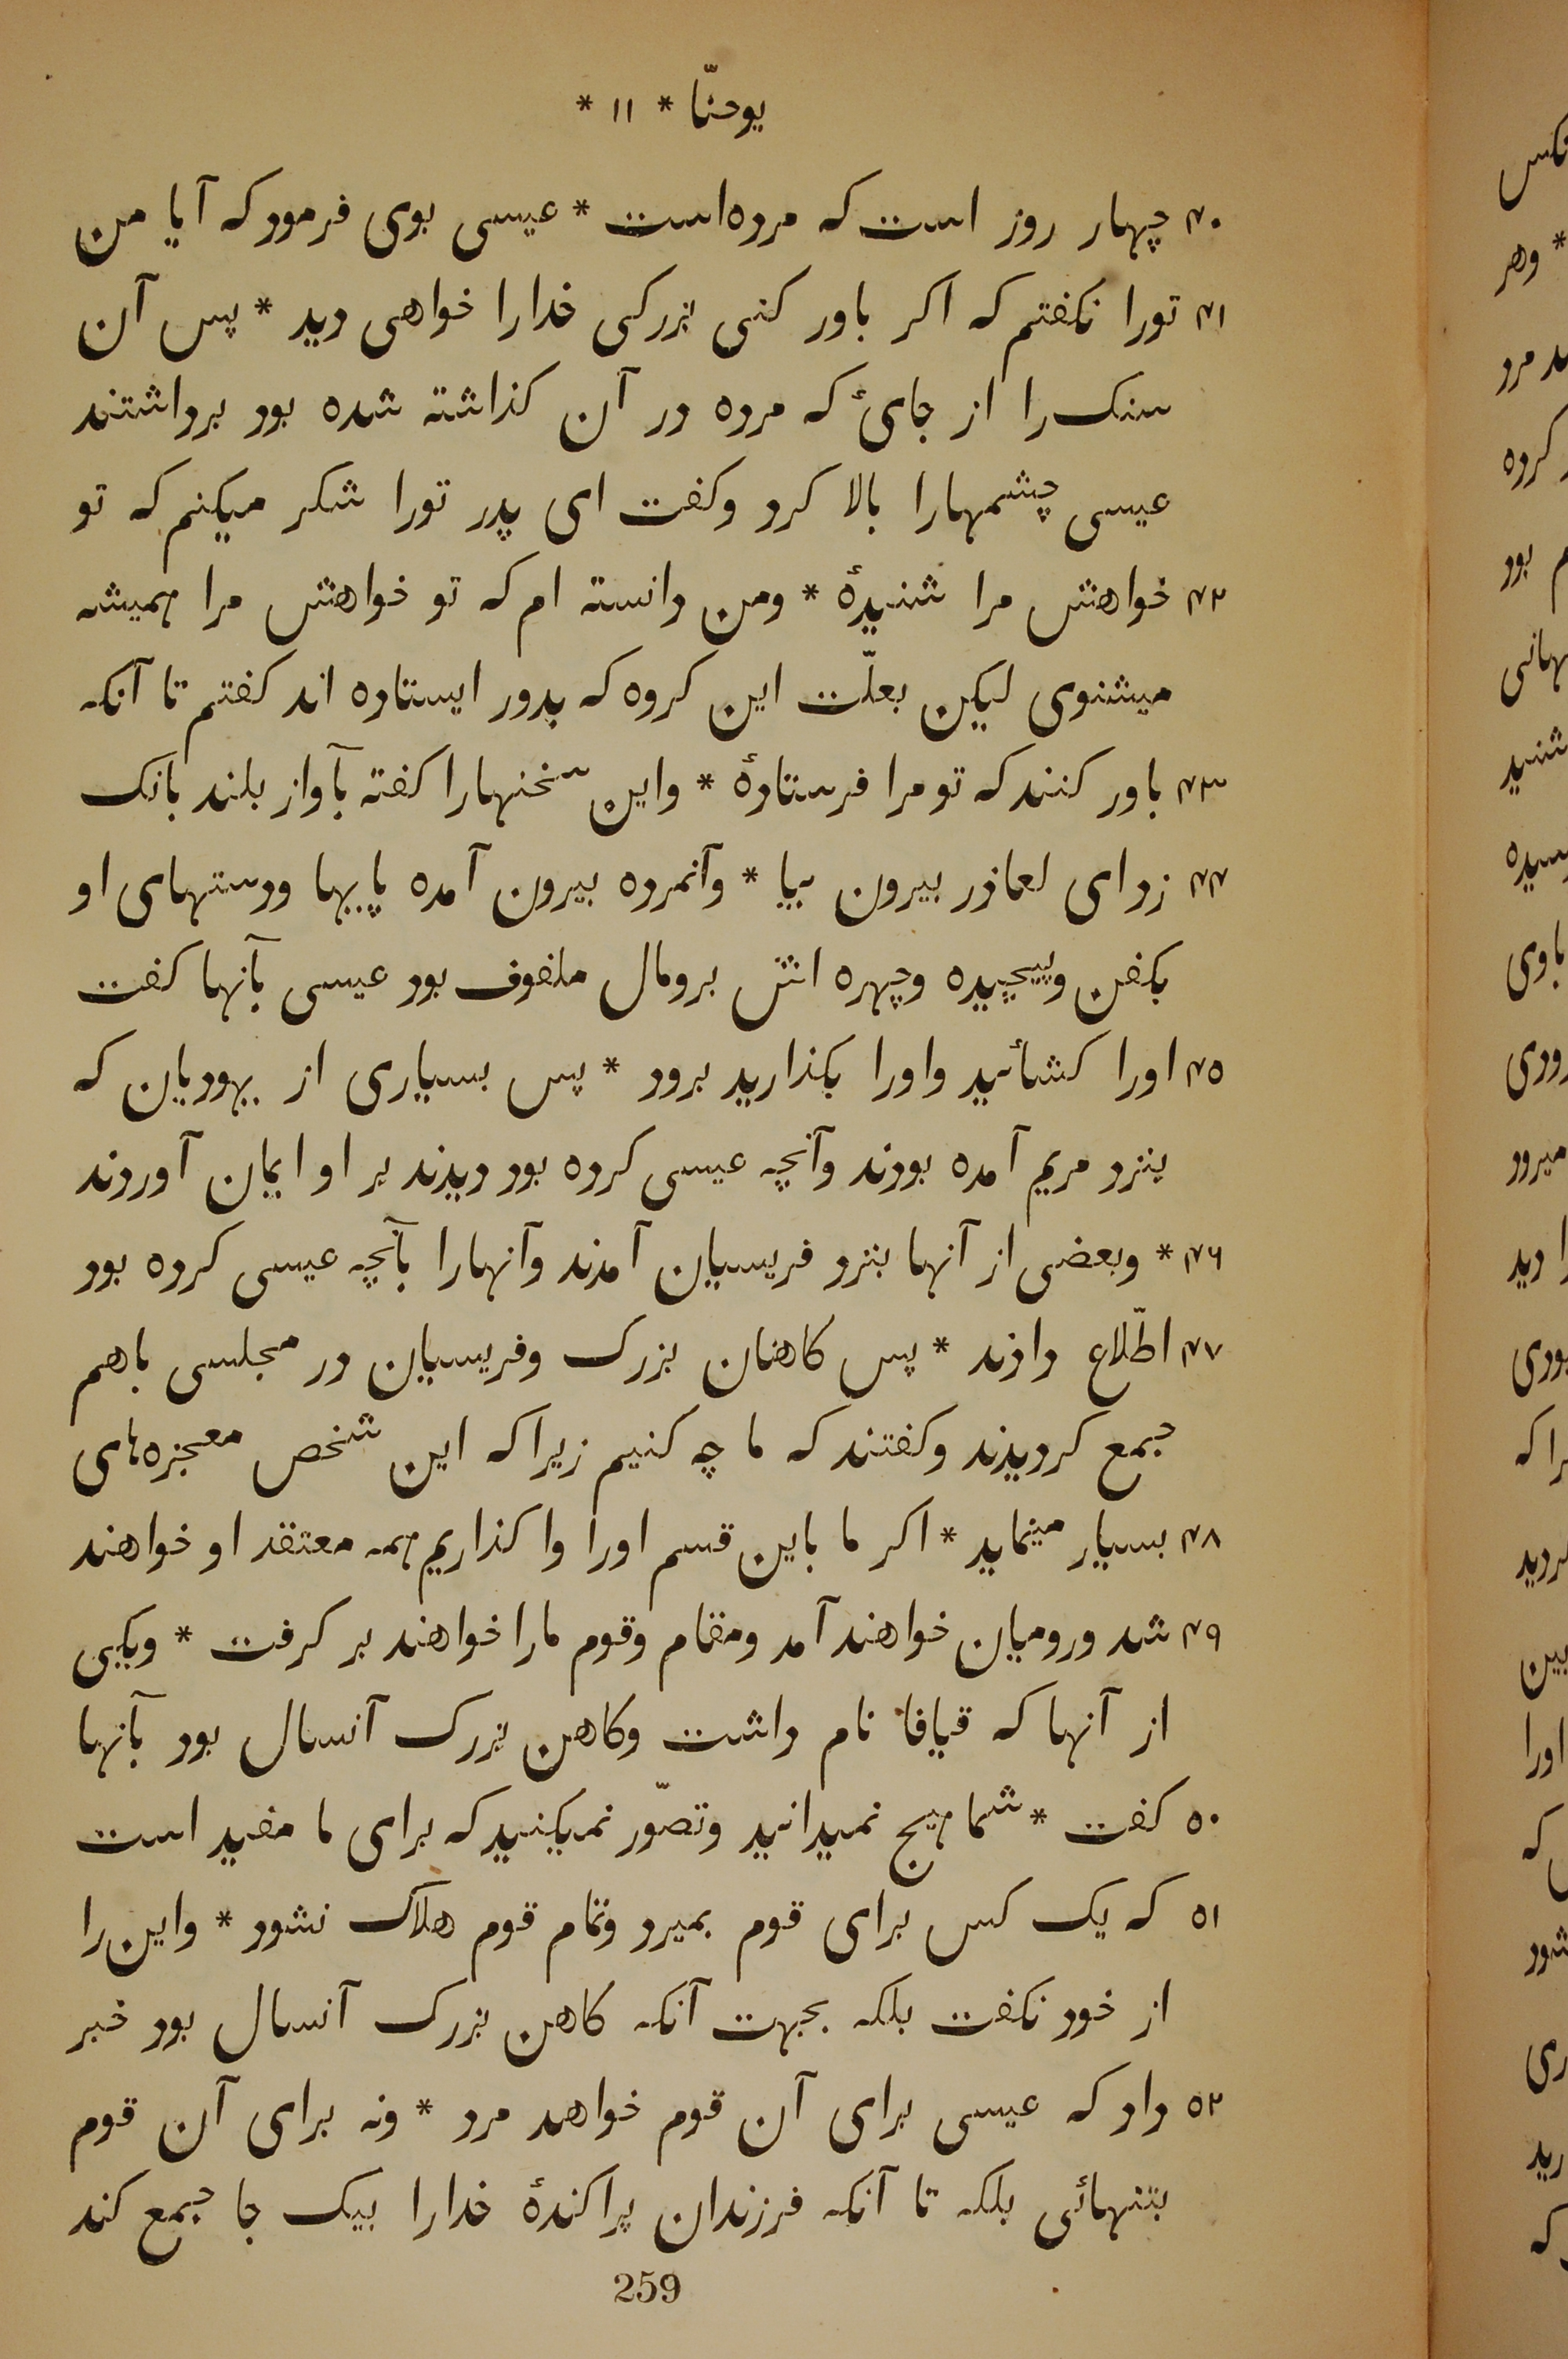 یوحنّا * ۱۱ *
۴۰ چهار روز است که مرده‌است * عیسی بوی فرمود که آیا من
۴۱ تورا نکفتم که اکر باور کنی بزرکی خدارا خواهی دید * پس آن
سنک را از جائ که مرده در آن کذاشته شده بود برداشتند
عیسی چشمهارا بالا کرد وکفت ای پدر تورا شکر میکنم که تو
۴۲ خواهش مرا شنیدهٔ * ومن دانسته ام که تو خواهش مرا همیشه
میشنوی لیکن بعلّت این کروه که بدور ایستاده اند کفتم تا آنکه
۴۳ باور کنند که تو مرا فرستادهٔ * واین سخنهارا کفته بآواز بلند بانک
۴۴ زد ای لعاذر بیرون بیا * وآنمرده بیرون آمده پایها ودستهای او
بکفن وپیچیده وچهره اش برومال ملفوف بود عیسی بآنها کفت
۴۵ اورا کشائید واورا بکذارید برود * پس بسیاری از یهودیان که
بنزد مریم آمده بودند وآنچه عیسی کرده بود دیدند بر او ایمان آوردند
۴۶ * وبعضی از آنها بنزد فریسیان آمدند وآنهارا بآنچه عیسی کرده بود
۴۷ اطّلاع دادند * پس کاهنان بزرک وفریسیان در مجلسی باهم
جمع کردیدند وکفتند که ما چه کنیم زیرا که این شخص معجزه‌های
۴۸ بسیار مینماید * اکر ما باین قسم اورا وا کذاریم همه معتقد او خواهند
۴۹ شد ورومیان خواهند آمد ومقام وقوم مارا خواهند بر کرفت * ویکی
از آنها که قیافا نام داشت وکاهن بزرک آنسال بود بآنها
۵۰ کفت * شما هیچ نمیدانید وتصّور نمیکنید که برای ما مفید است
۵۱ که یک کس برای قوم بمیرد وتمام قوم هلاک نشود * واین را
از خود نکفت بلکه بجهت آنکه کاهن بزرک آنسال بود خبر
۵۲ داد که عیسی برای آن قوم خواهد مرد * ونه برای آن قوم
بتنهائی بلکه تا آنکه فرزندان پراکندهٔ خدارا بیک جا جمع کند
259